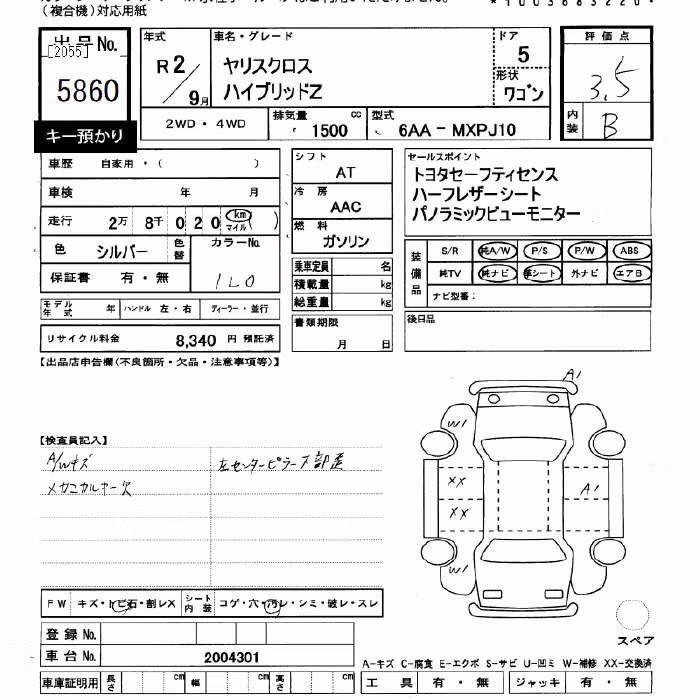 （複合機）対応用紙
*1003683220*
出品No.
[2055]
5860
キー預かり
年式
R2/9月
車名・グレード
ヤリスクロス
ハイブリッドZ
ドア
5
形状
ワゴン
評価点
3.5
内装
B
2WD・4WD
排気量
1500 cc
型式
6AA-MXPJ10
車歴 自家用・( )
車検 年 月
走行 2万 8千 0 2 0 km マイル ( )
色 シルバー 色替 カラーNo.
1L0
保証書 有・無
モデル年式 年 ハンドル 左・右 ディーラー・並行
リサイクル料金 8,340 円 預託済
シフト
AT
冷房
AAC
燃料
ガソリン
乗車定員 名
積載量 kg
総重量 kg
書類期限
月 日
セールスポイント
トヨタセーフティセンス
ハーフレザーシート
パノラミックビューモニター
装備品
S/R 純A/W P/S P/W ABS
純TV 純ナビ 革シート 外ナビ エアB
ナビ型番：
後日品
【出品店申告欄(不良箇所・欠品・注意事項等)】
【検査員記入】
A/Wキズ
メカニカルキー欠
左センターピラー下部歪
A1
W1
XX
XX
A1
W1
FW キズ・トビ石・割レX シート内装 コゲ・穴・汚レ・シミ・破レ・スレ
登録No.
車台No. 2004301
車庫証明用 長さ cm 幅 cm 高さ cm
スペア
A-キズ C-腐食 E-エクボ S-サビ U-凹ミ W-補修 XX-交換済
工具 有・無 ジャッキ 有・無